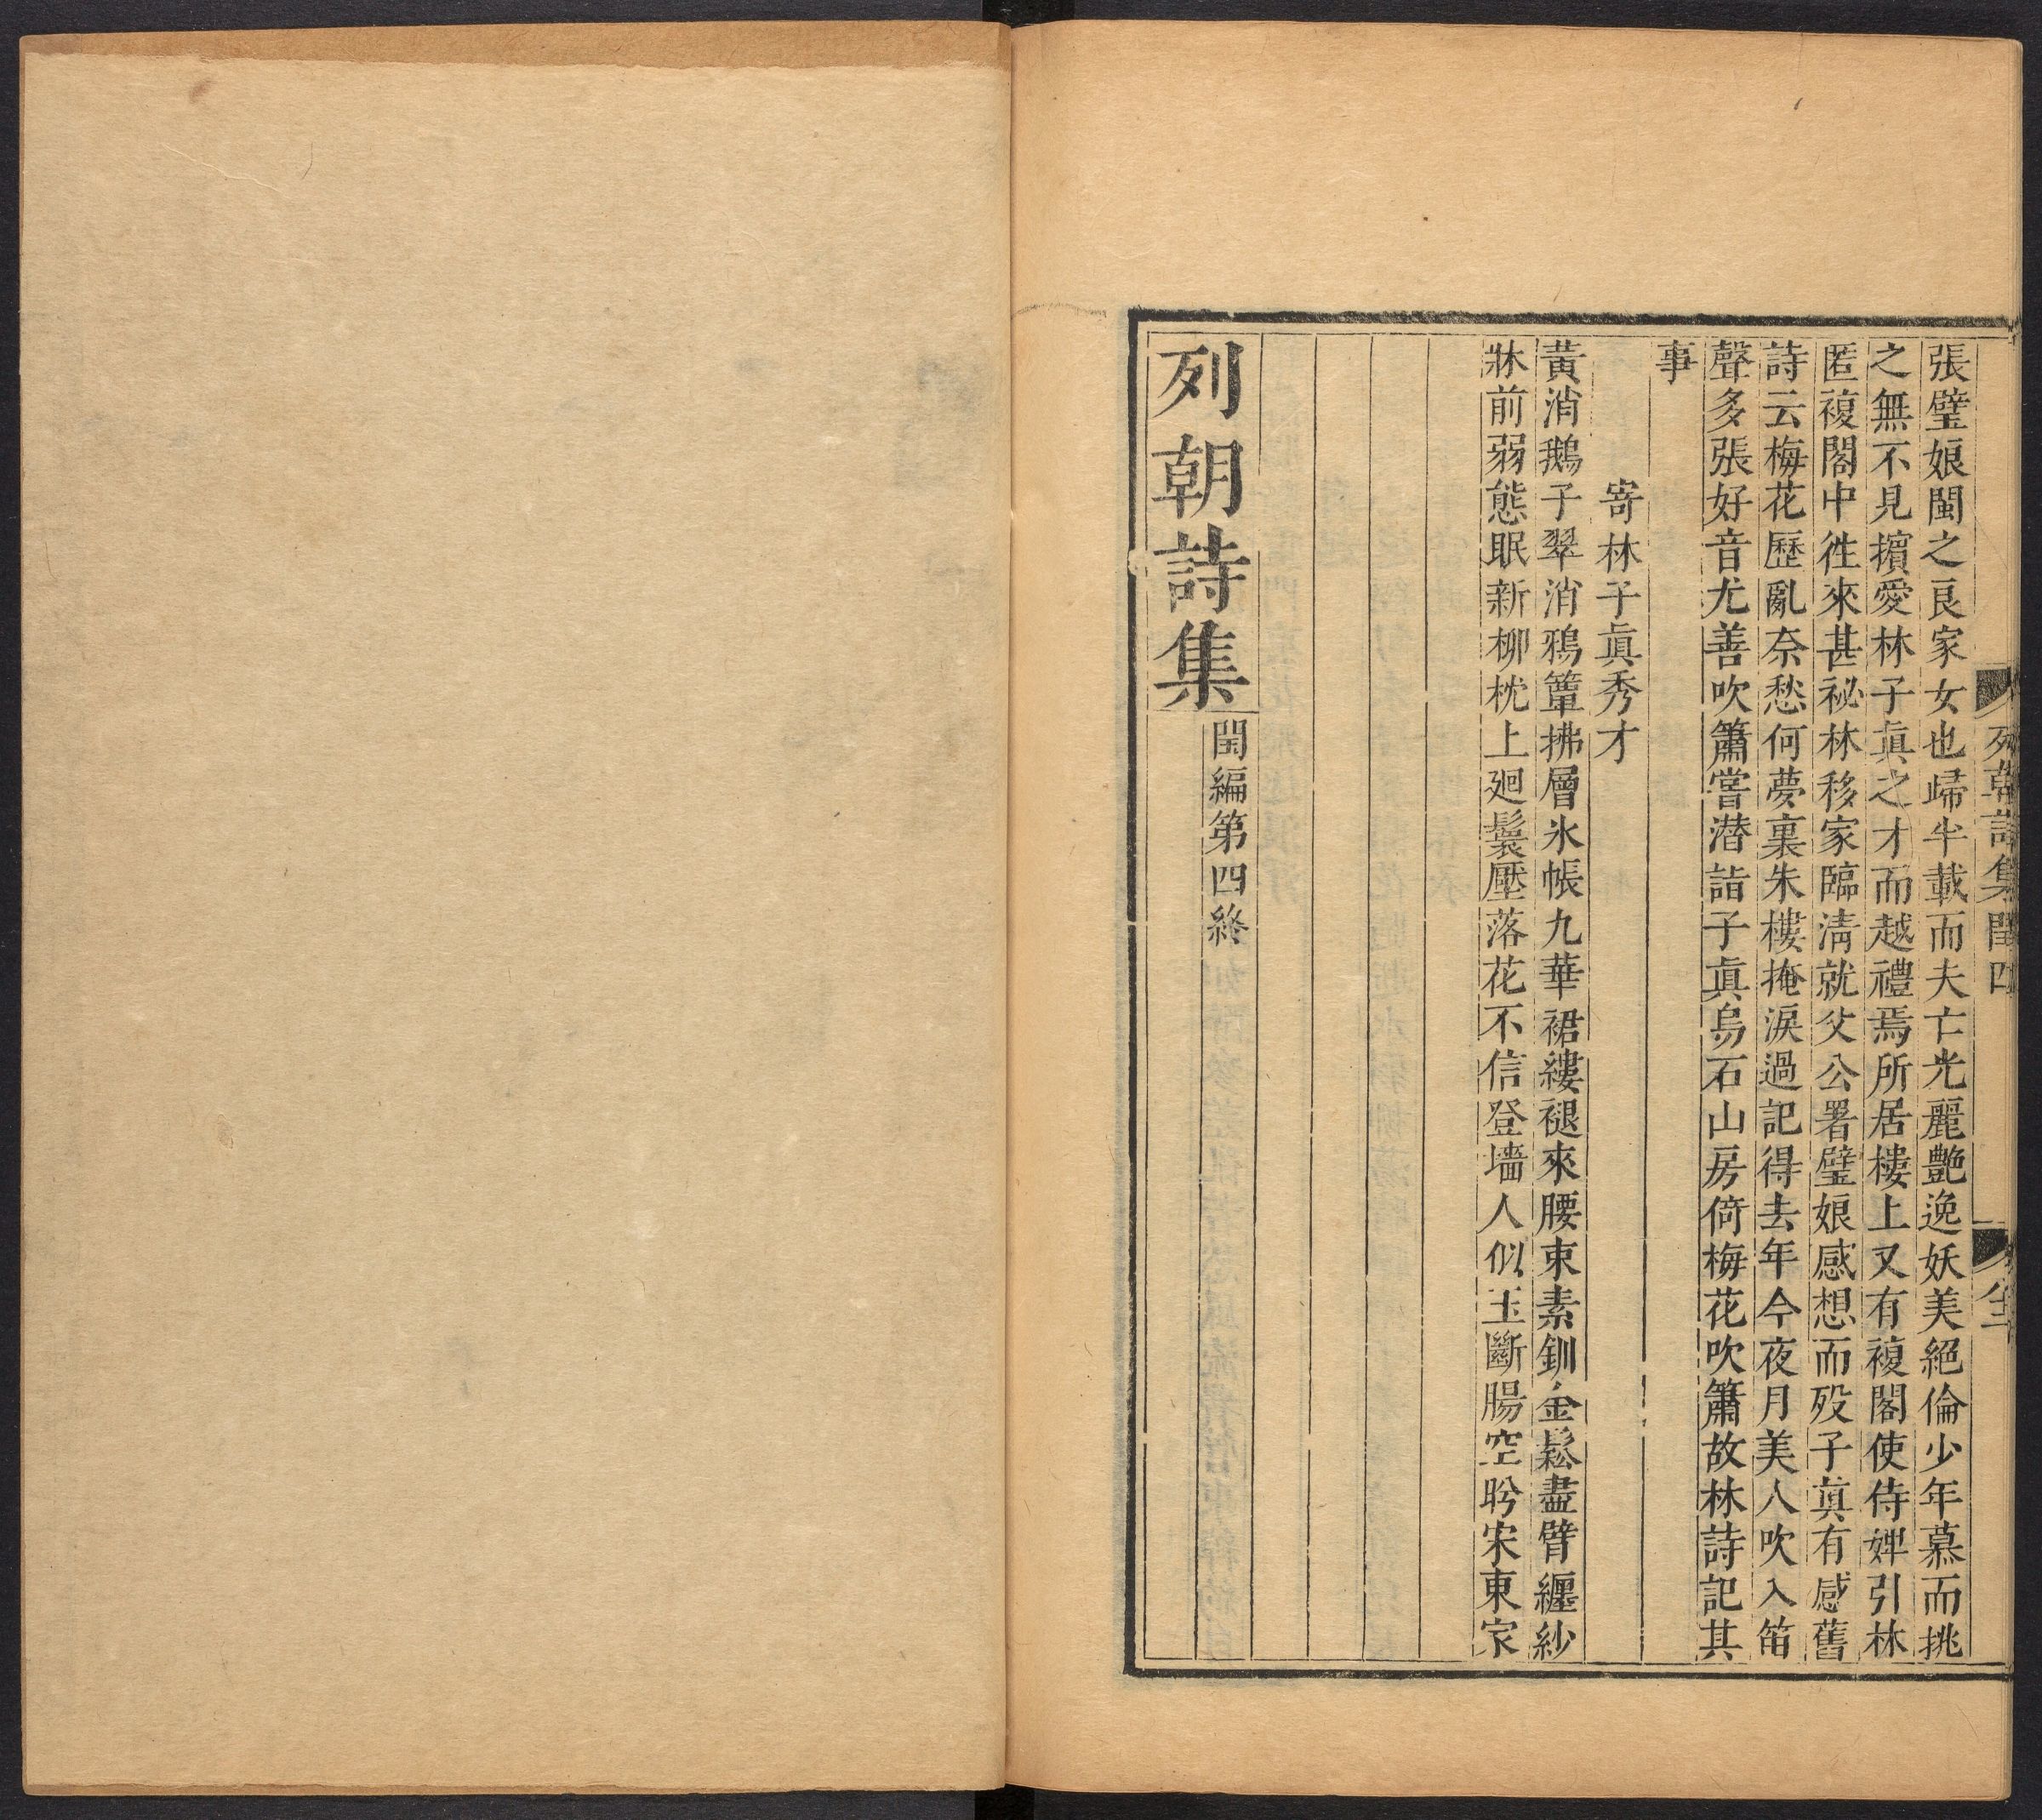 列朝詩集閏四
張璧娘閩之良家女也歸半載而夫亡光麗艷逸妖美絕倫少年慕而挑
之無不見擯愛林子眞之才而越禮焉所居樓上又有複閣使侍婢引林
匿複閣中徃來甚祕林移家臨清就父公署璧娘感想而歿子眞有感舊
詩云梅花歷亂奈愁何夢裏朱樓掩淚過記得去年今夜月美人吹入笛
聲多張好音尤善吹簫嘗潛詣子眞烏石山房倚梅花吹簫故林詩記其
事
寄林子眞秀才
黃消鵝子翠消鴉簟拂層氷帳九華裙縷褪來腰束素釧金鬆盡臂纏紗
牀前弱態眠新柳枕上廻鬟壓落花不信登墻人似玉斷腸空盻宋東家
列朝詩集
閏編第四終